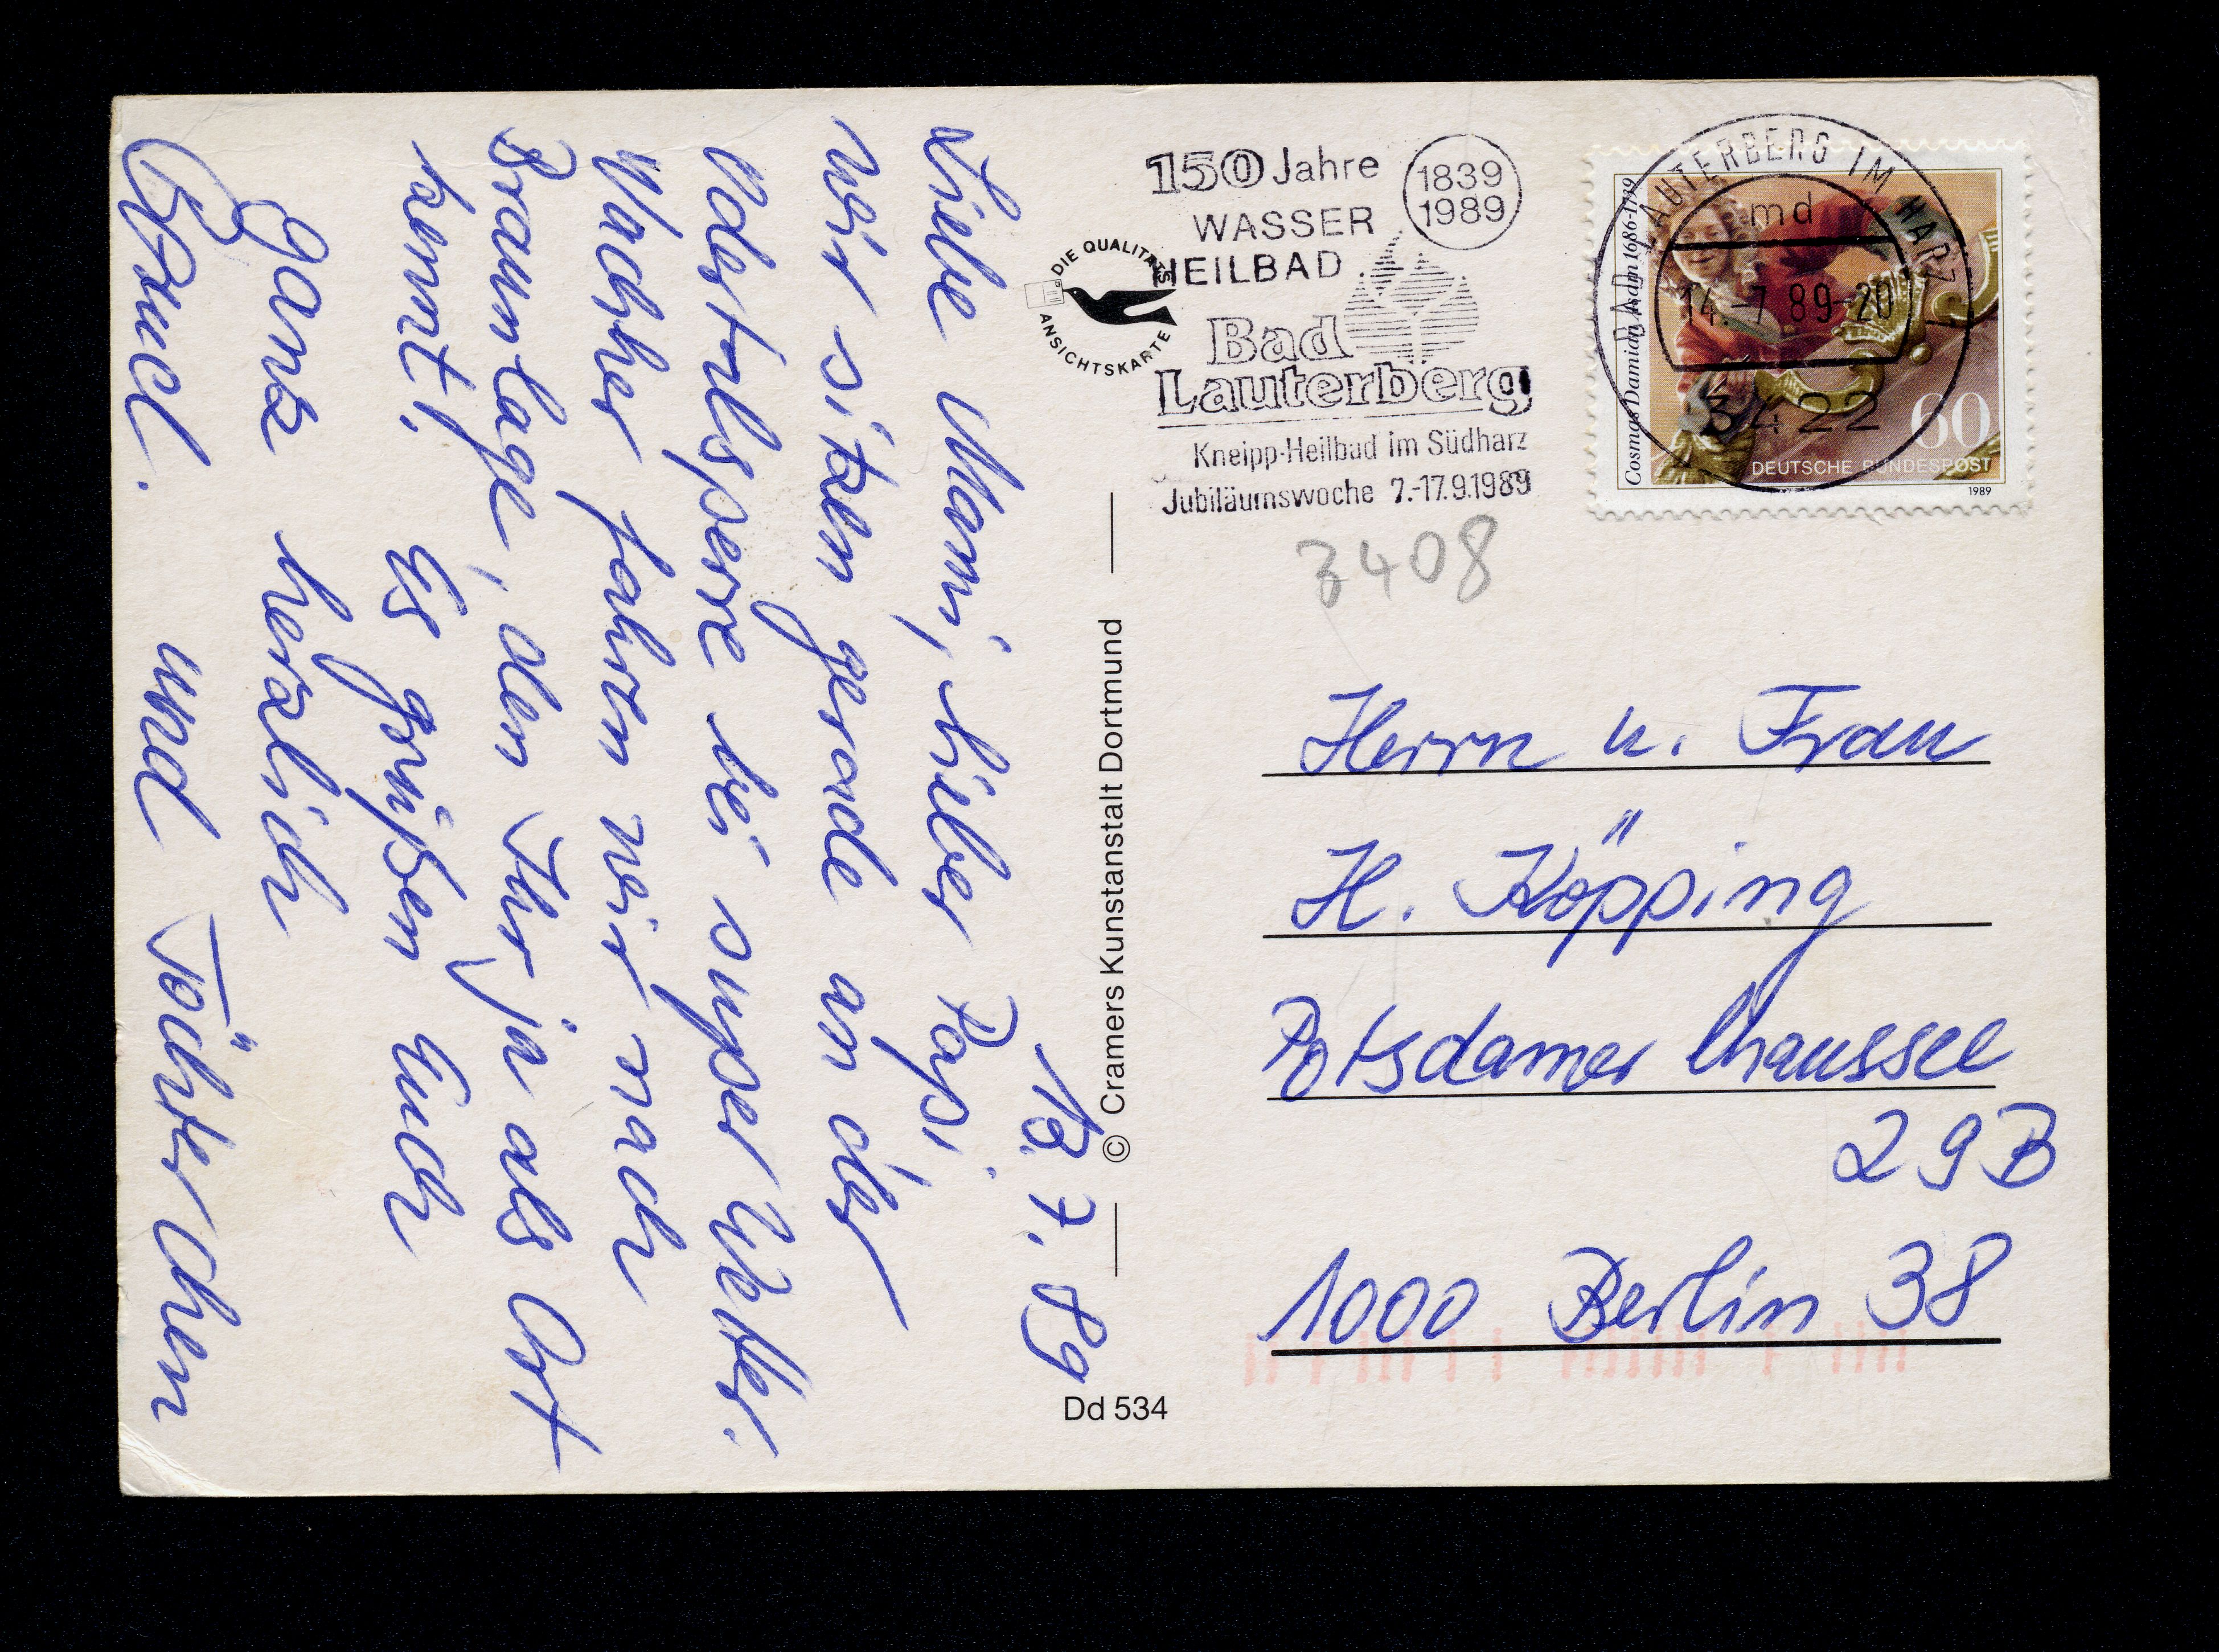 13.7.89
Liebe Mami, lieber Papi,
wir sitzen gerade an der
Odertalsperre bei super Wetter.
Nachher fahren wir nach
Braunlage, den Ihr ja als Ort
kennt! Es grüßen Euch
ganz herzlich
und Töchterchen
150 Jahre
1839
1989
WASSER
HEILBAD
Bad
Lauterberg
Kneipp-Heilbad im Südharz
Jubiläumswoche 7.-17.9.1989
DIE QUALITÄTS
ANSICHTSKARTE
BAD LAUTERBERG IM HARZ 1
md
14.-7.89-20
3422
Cosmas Damian Asam 1686-1739
60
DEUTSCHE BUNDESPOST
1989
3408
© Cramers Kunstanstalt Dortmund
Dd 534
Herrn u. Frau
H. Köpping
Potsdamer Chaussee
29B
1000 Berlin 38